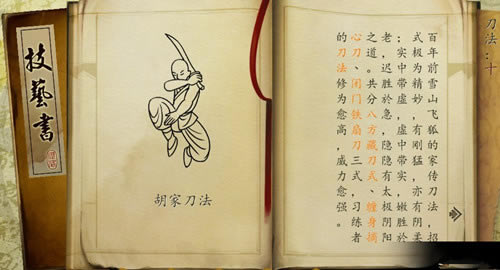 技藝書
胡家刀法
刀法:十
百年前雪山飞狐的家传刀法,招
式极为精妙,有刚猛,亦有阴柔
实中带虚,虚中带实,嫩胜於
老,迟胜於急,隐太极阴阳
之道。共分八方藏刀式、缠身摘
心刀、闭门铁扇刀三式,习练者
的刀法修为愈高,威力愈强。